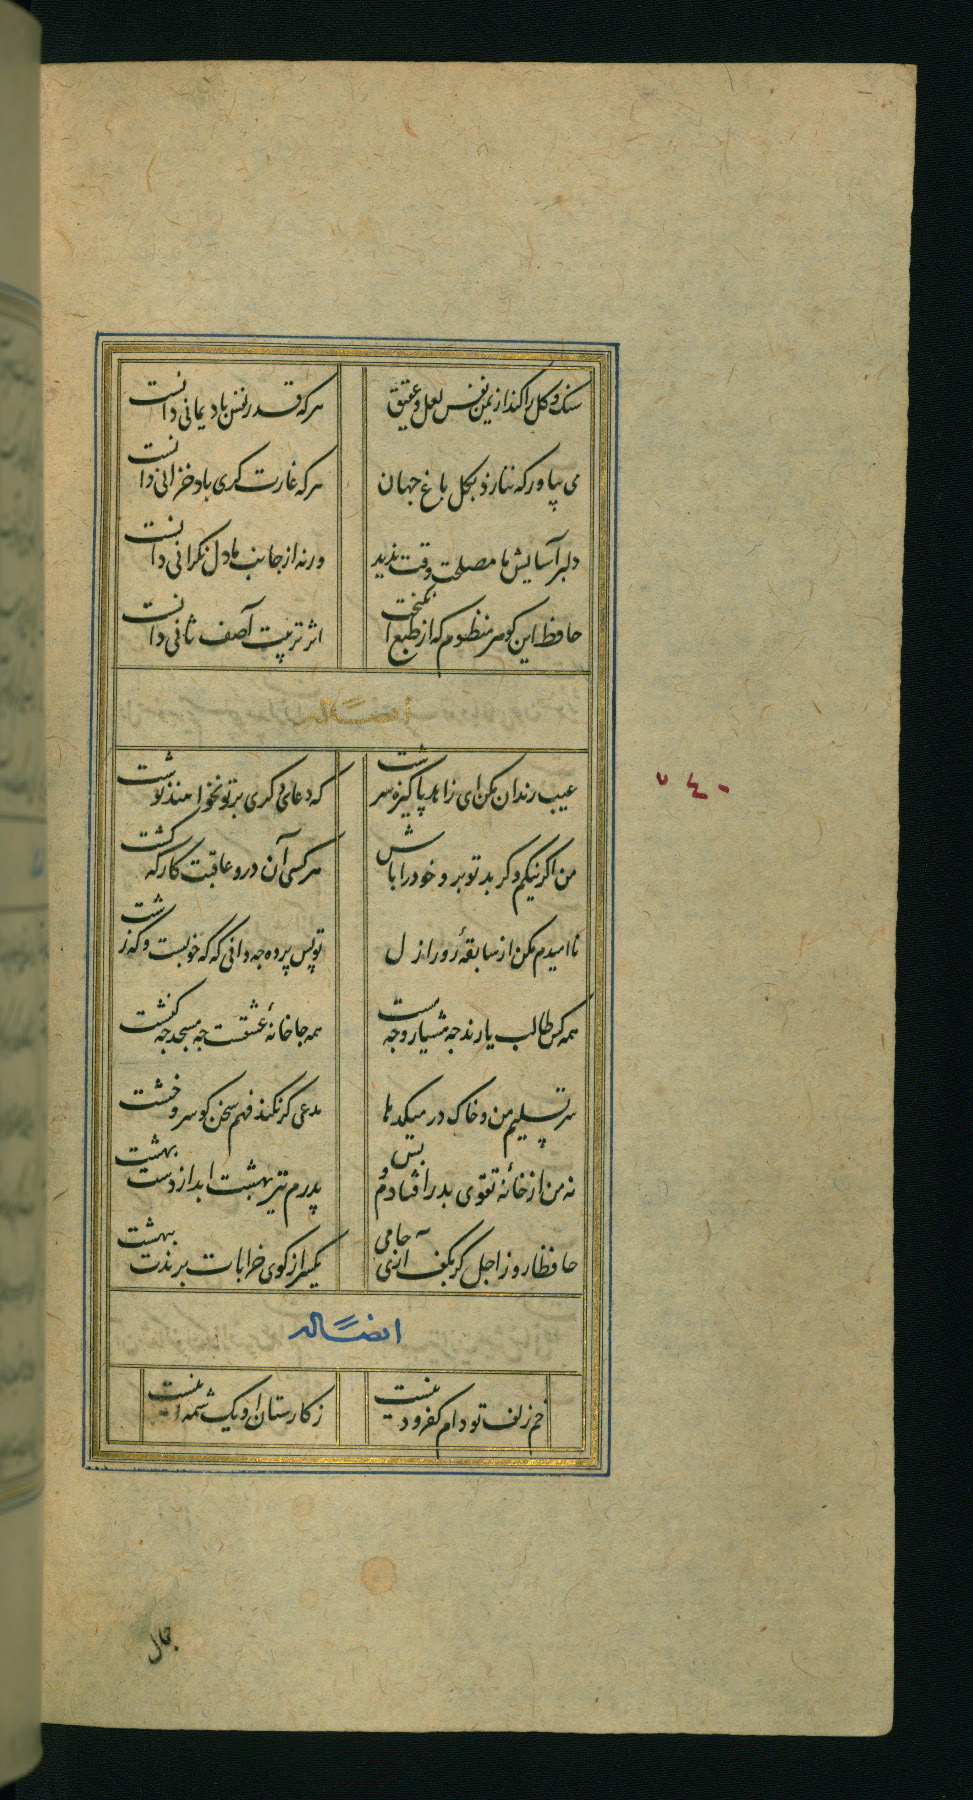 سنک و کل را کند از یمن نفس لعل و عقیق هر که قدر نفس باد یمانی دانست
می بیاور که ننازد بکل باغ جهان هر که غارت کری باد خزانی دانست
دلبر آسایش ما مصلحت وقت ندید ورنه از جانب ما دل نکرانی دانست
حافظ این کوهر منظوم که از طبع انکیخت اثر تربیت آصف ثانی دانست
ایضاً له
عیب رندان مکن ای زاهد پاکیزه سرشت که دعای دکری بر تو نخواهند نوشت
۷۴۰
من اکر نیکم و کر بد تو برو خود را باش هر کسی آن درود عاقبت کار که کشت
نا امیدم مکن از سابقهٔ روز ازل تو پس پرده چه دانی که که خوبست و که زشت
همه کس طالب یارند جه هشیار و جه مست همه جا خانهٔ عشقست جه مسجد جه کنشت
سر تسلیم من و خاک در میکدها مدعی کر نکند فهم سخن کو سر و خشت
نه من از خانهٔ تقوی بدر افتادم و بس پدرم نیز بهشت ابد از دست بهشت
حافظا روز اجل کر بکف آری جامی یکسر از کوی خرابات برندت ببهشت
ایضاً له
خم زلف تو دام کفر و دینست ز کارستان او یک شمه اینست
جمال